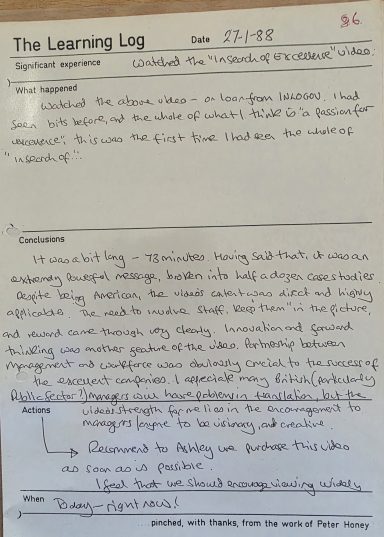 §6.
The Learning Log Date 27-1-88
Significant experience Watched the "In Search of Excellence" video.
What happened
Watched the above video – on loan from INLOGOV. I had
seen bits before, and the whole of what I think is "a passion for
excellence"; this was the first time I had seen the whole of
"in search of".
Conclusions
It was a bit long – 73 minutes. Having said that, it was an
extremely powerful message, broken into half a dozen case studies.
Despite being American, the video's content was direct and highly
applicable. The need to involve staff, keep them "in the picture,
and reward came through very clearly. Innovation and forward
thinking was another feature of the video. Partnership between
management and workforce was obviously crucial to the success of
the excellent companies. I appreciate many British (particularly
Public Sector?) managers will have problems in translation, but the
video's strength for me lies in the encouragement to
managers/anyone to be visionary, and creative.
Actions
Recommend to Ashley we purchase this video
as soon as is possible.
I feel that we should encourage viewing widely
When Today – right now!
...pinched, with thanks, from the work of Peter Honey